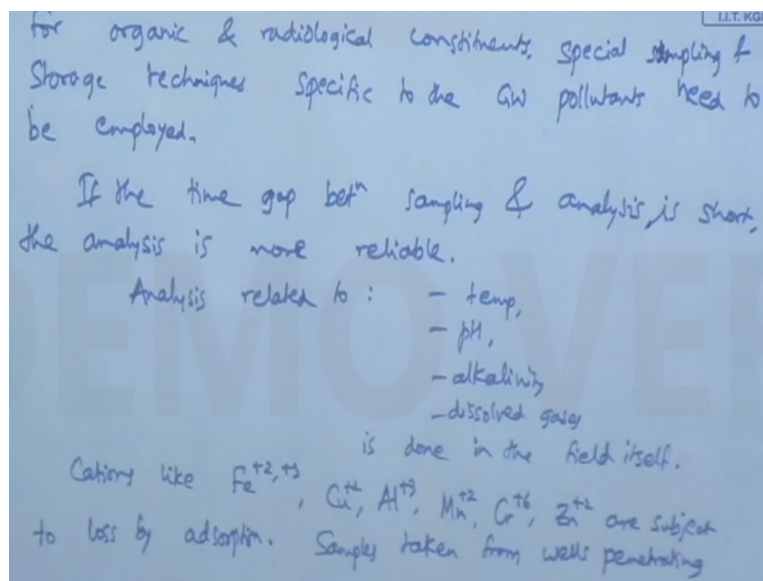 I.I.T. KGP
for organic & radiological constituents, special sampling &
Storage techniques specific to the GW pollutants need to
be employed.
If the time gap betⁿ sampling & analysis, is short,
the analysis is more reliable.
Analysis related to : - temp,
- pH,
- alkalinity
- dissolved gases
is done in the field itself.
Cations like Fe⁺²,⁺³, Cu⁺², Al⁺³, Mn⁺², Cr⁺⁶, Zn⁺² are subject
to loss by adsorption. Samples taken from wells penetrating
DEMO VE